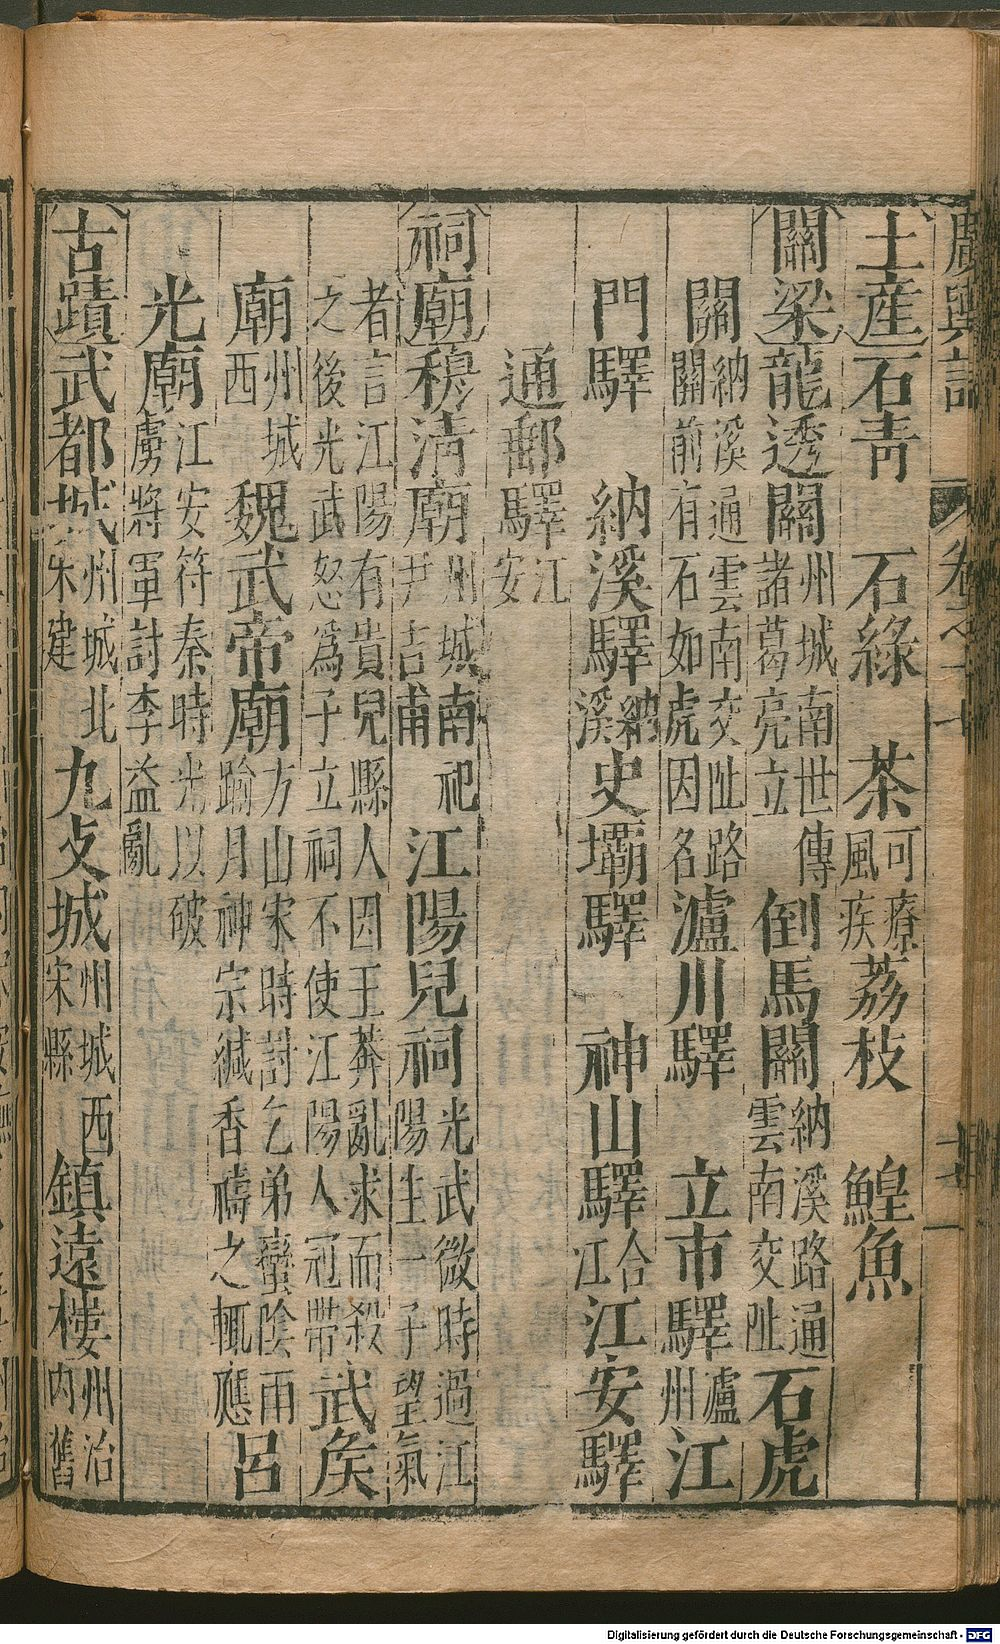 廣輿記 卷之十七
土產 石青 石綠 茶 可療風疾 荔枝 鰉魚
關梁 龍透關 州城南世傳諸葛亮立 倒馬關 納溪路通雲南交阯 石虎
關 納溪通雲南交阯路關前有石如虎因名 瀘川驛 立市驛 瀘州 江
門驛 納溪驛 納溪 史壩驛 神山驛 合江 江安驛
通郵驛 江安
祠廟 穆淸廟 州城南祀尹吉甫 江陽兒祠 光武微時過江陽生一子望氣
者言江陽有貴兒縣人因王莽亂求而殺之後光武怒爲子立祠不使江陽人冠帶 武矦
廟 州城西 魏武帝廟 方山宋時討乞弟蠻陰雨踰月神宗緘香禱之輒應 呂
光廟 江安符秦時光以破虜將軍討李益亂
古蹟 武都城 州城北宋建 九攴城 州城西宋縣 鎮遠樓 州治內舊
Digitalisierung gefördert durch die Deutsche Forschungsgemeinschaft - DFG